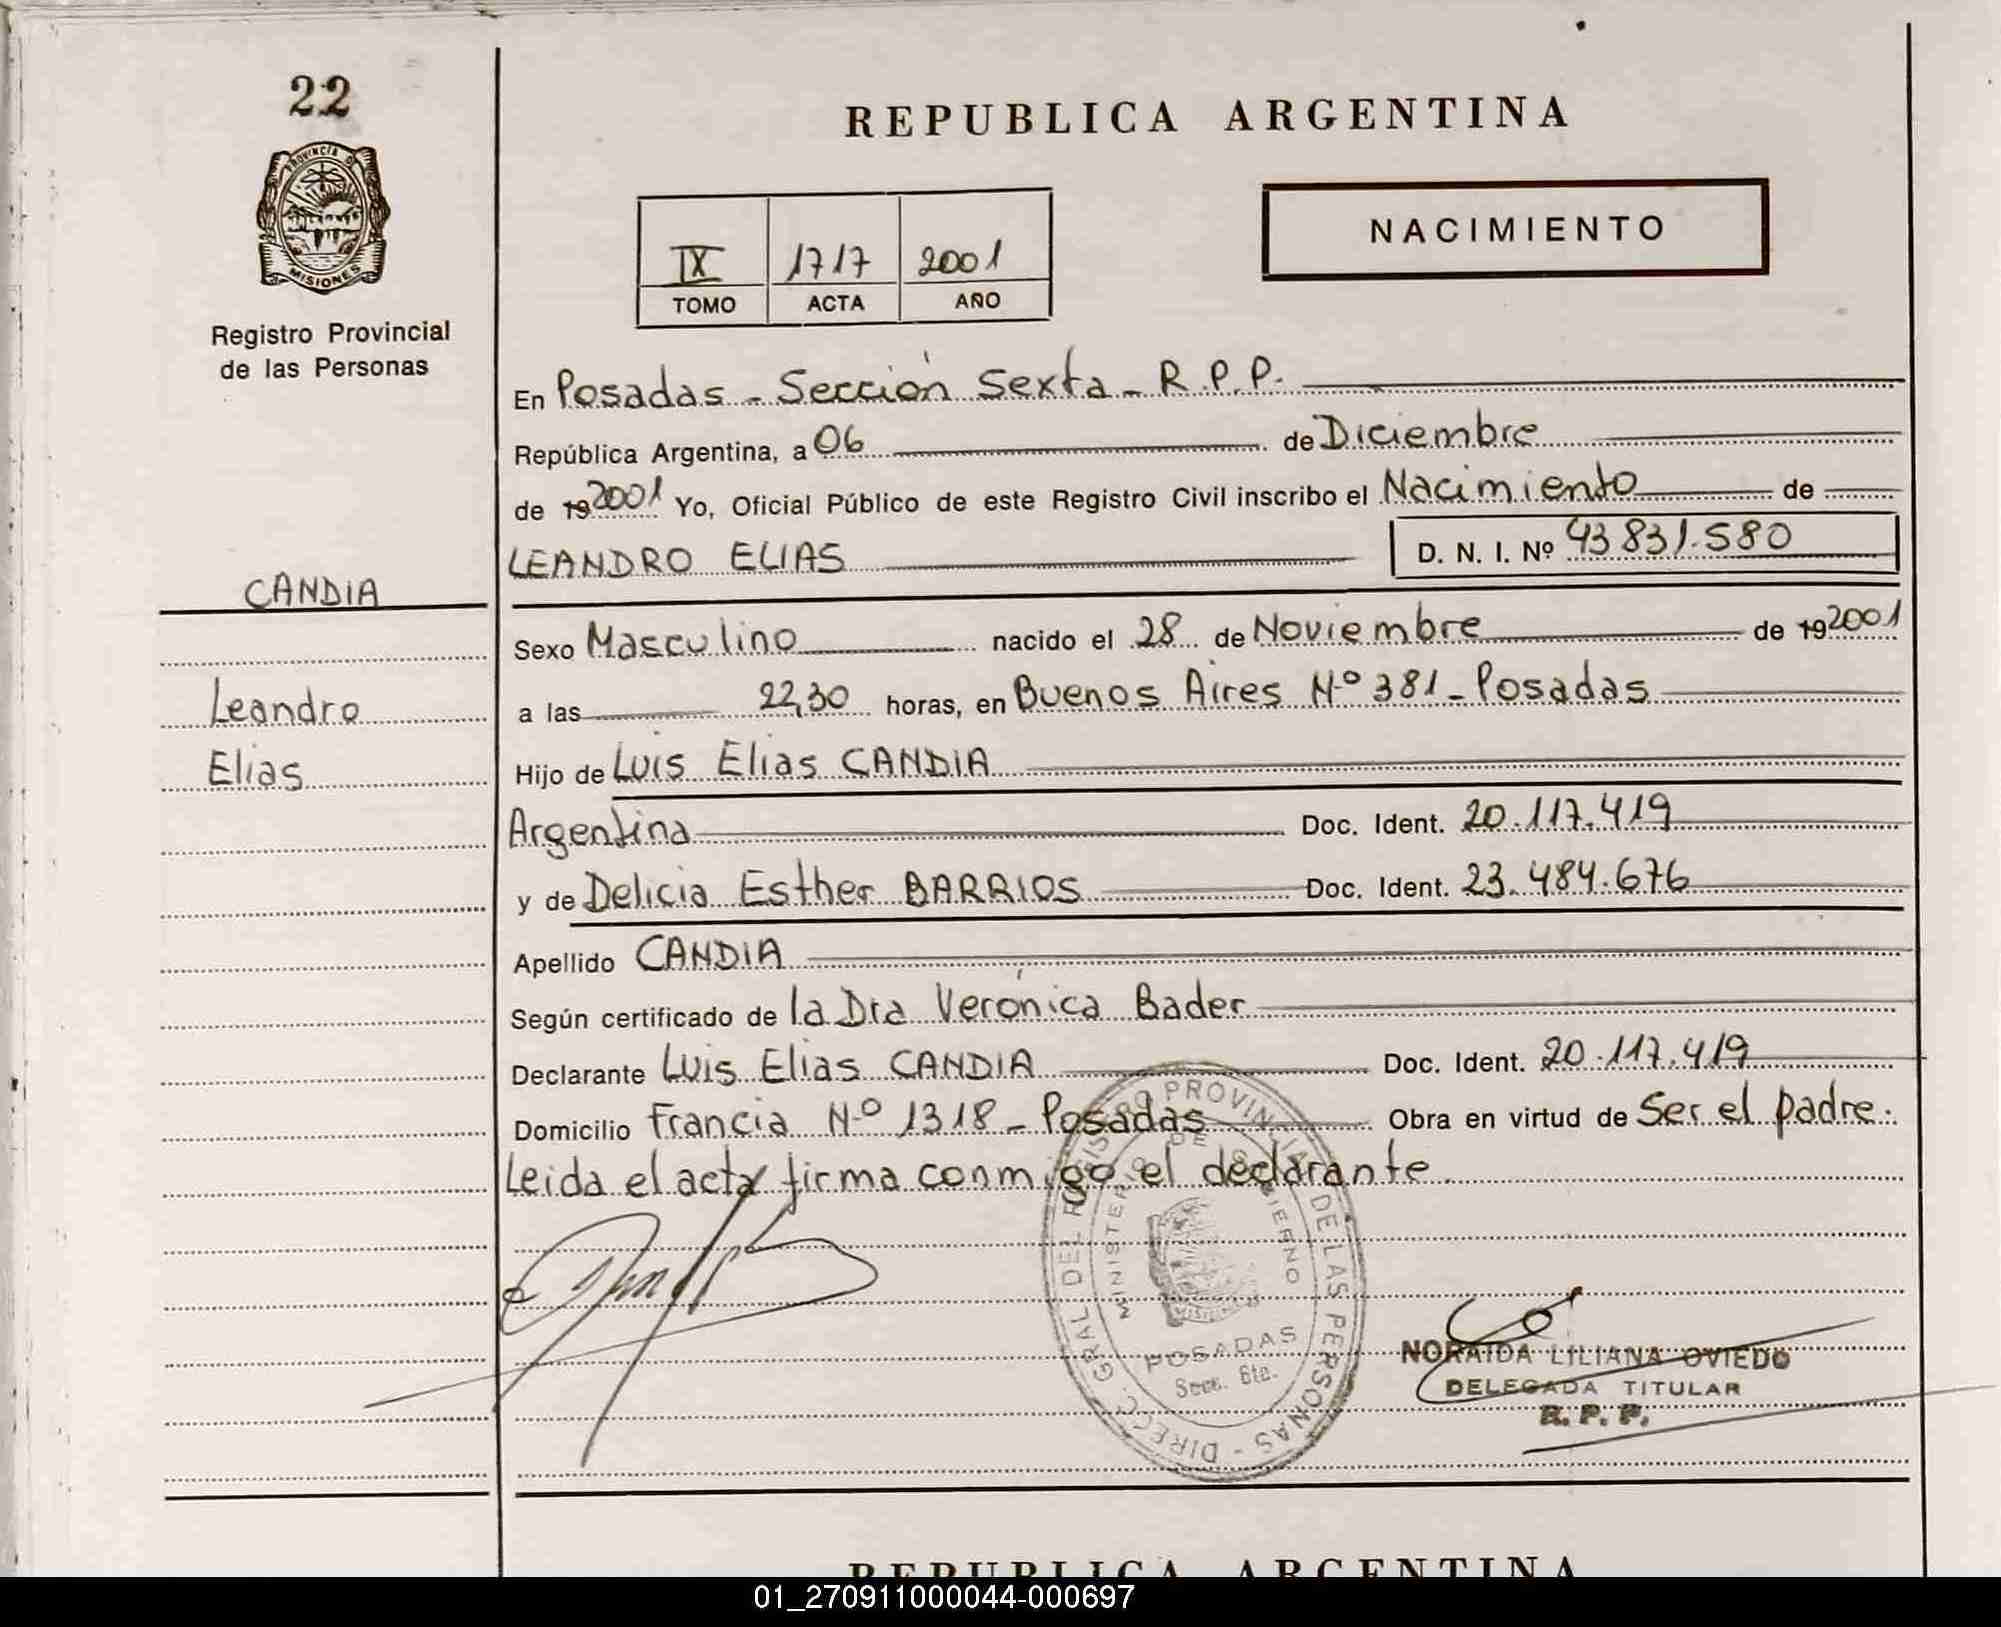 22
PROVINCIA DE
MISIONES
Registro Provincial
de las Personas
CANDIA
Leandro
Elias
REPUBLICA ARGENTINA
IX 1717 2001
TOMO ACTA AÑO
NACIMIENTO
En Posadas - Sección Sexta - R.P.P.
República Argentina, a 06 de Diciembre
de 19 2001 Yo, Oficial Público de este Registro Civil inscribo el Nacimiento de
LEANDRO ELIAS D. N. I. Nº 43831.580
Sexo Masculino nacido el 28 de Noviembre de 19 2001
a las 22,30 horas, en Buenos Aires Nº 381 - Posadas
Hijo de Luis Elias CANDIA
Argentina Doc. Ident. 20.117.419
y de Delicia Esther BARRIOS Doc. Ident. 23.484.676
Apellido CANDIA
Según certificado de la Dra Verónica Bader
Declarante Luis Elias CANDIA Doc. Ident. 20.117.419
Domicilio Francia Nº 1318 - Posadas Obra en virtud de Ser el padre.
Leida el acta firma conmigo el declarante
DIRECC. GRAL DEL REGISTRO PROVINCIAL DE LAS PERSONAS -
MINISTERIO DE GOBIERNO
POSADAS
Secc. 6ta.
NORAIDA LILIANA OVIEDO
DELEGADA TITULAR
R. P. P.
REPUBLICA ARGENTINA
01_270911000044-000697